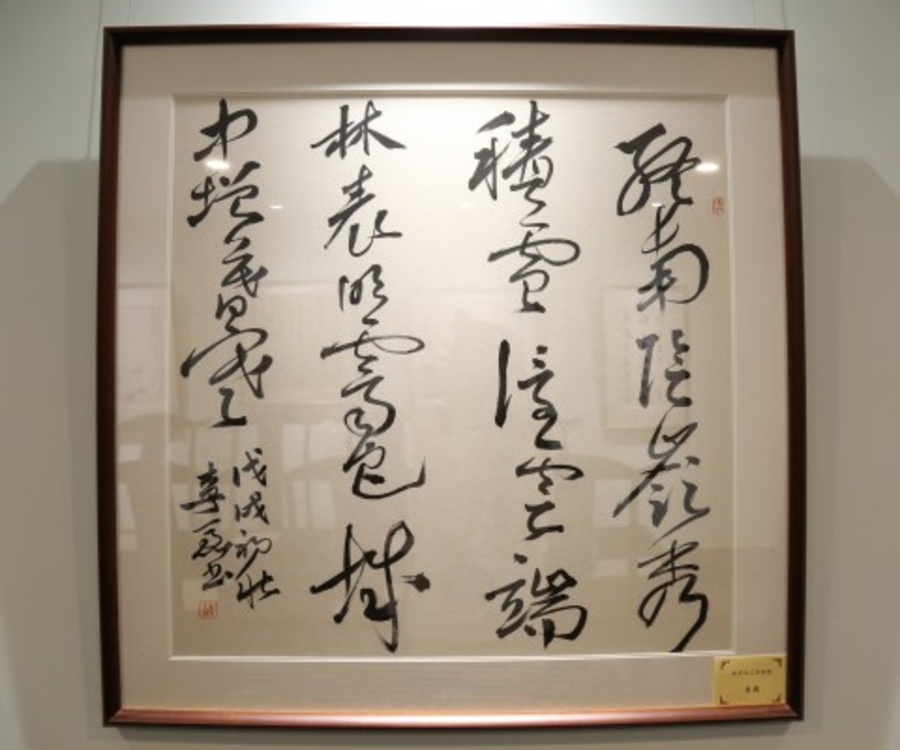 終南陰嶺秀
積雪浮雲端
林表明霽色城
中增暮寒
戊戌初秋